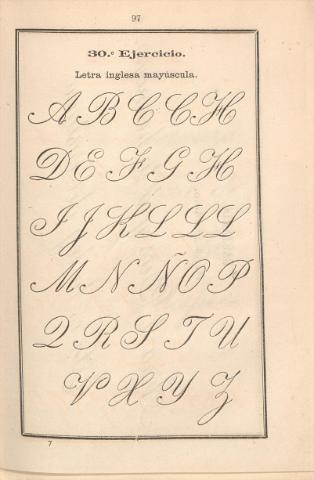 97
30.º Ejercicio.
Letra inglesa mayúscula.
A B C CH
D E F G H
I J K L LL
M N Ñ O P
Q R S T U
V X Y Z
7